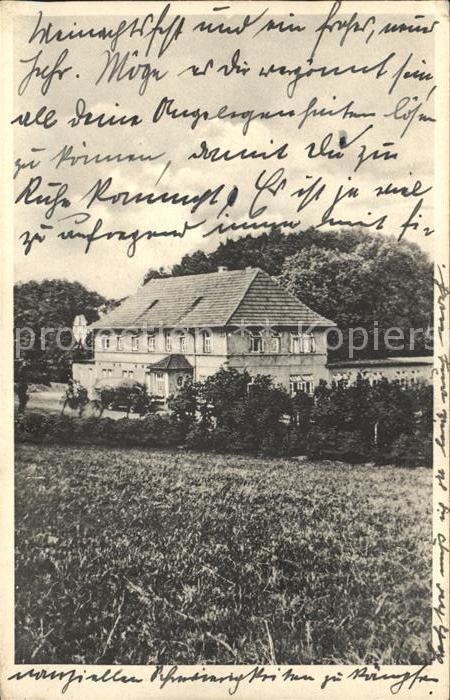 Weinachtsfest und ein frohes, neues
Jahr. Möge es dir vergönnt sein,
all deine Angelegenheiten lösen
zu können, damit Du zur
Ruhe kommst! Es ist ja viel
zu aufregend immer mit fi-
nanziellen Schwierigkeiten zu kämpfen
protection des Kopiers